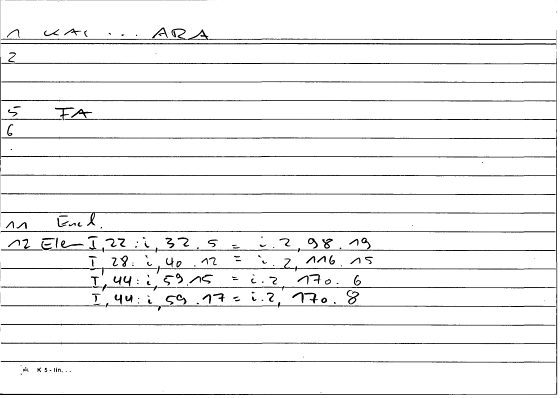 1 KAI ... ARA
2
5 FA
6
11 Eucl.
12 Elem I,22: i, 32.5 = i.2, 98.19
I,28: i, 40.12 = i.2, 116.15
I,44: i, 59.15 = i.2, 170.6
I,44: i, 59.17 = i.2, 170.8
K 5 - lin. . .